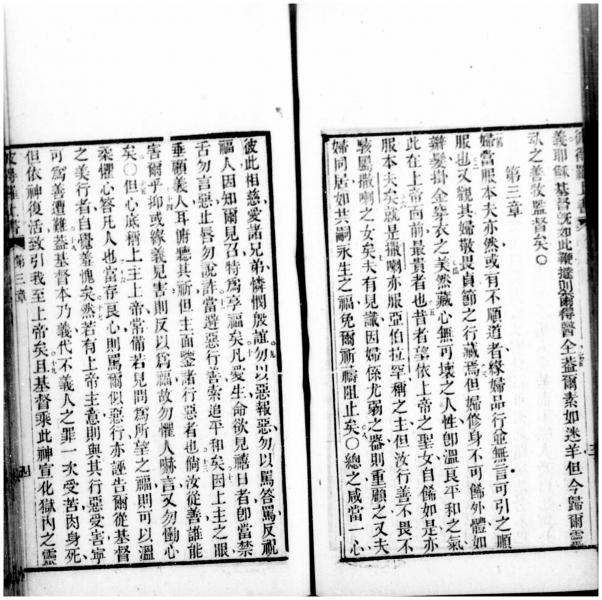 義耶穌基督旣如此鞭撻則爾得醫全蓋爾素如迷羊但今歸爾靈
魂之善牧監督矣○
第三章
婦當服本夫亦然或有不願道者緣婦品行爺無言可引之順
服也又觀其婦敬畏貞節之行藏焉但婦修身不可餙外體如
辮髮掛金穿衣之美然藏心無可壞之人性卽溫良平和之氣
此在上帝向前最貴者也昔者望依上帝之聖女自餙如是亦
服本夫矣就是撒喇亦服亞伯拉罕稱之主但汝行善不畏不
駭屬撒喇之女矣夫有見識因婦係尤弱之器則重顧之又夫
婦同居如共嗣永生之福免爾祈禱阻止矣○總之咸當一心
彼此相慈愛諸兄弟憐憫殷誼勿以惡報惡勿以駡答駡反祝
福人因知爾見召特爲享福矣凡愛生命欲見禧日者卽當禁
舌勿言惡止唇勿說詐當遊惡行善索追平和矣因上主之眼
垂顧義人耳俯聽其祈但主面鑒諸行惡者也倘汝從善誰能
害爾乎抑或緣義見害則反以爲福故勿懼人嚇言又勿慟心
矣○但心底稱上主上帝常備若見問爲所望之福則可以溫
柔懼心答凡人也當存良心則駡爾似惡行亦誣告爾從基督
之美行者自覺羞愧矣然若有上帝主意則與其行惡受害寧
可爲善遭難蓋基督本乃義代不義人之罪一次受苦肉身死
但依神復活致引我至上帝矣且基督乘此神宣化獄內之靈
第三章